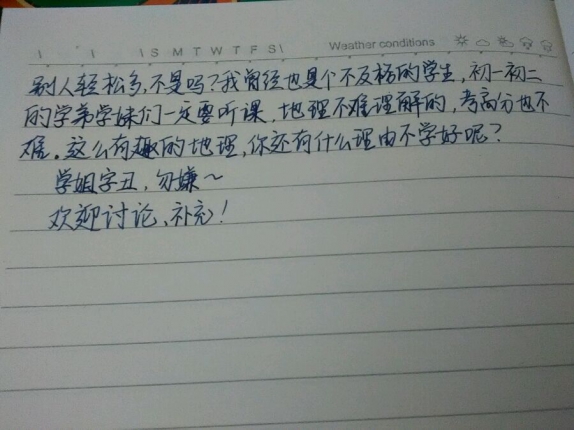 S M T W T F S Weather conditions
别人轻松多,不是吗?我曾经也是个不及格的学生,初一初二
的学弟学妹们一定要听课,地理不难理解的,考高分也不
难。这么有趣的地理,你还有什么理由不学好呢?
学姐字丑,勿嫌~
欢迎讨论、补充!